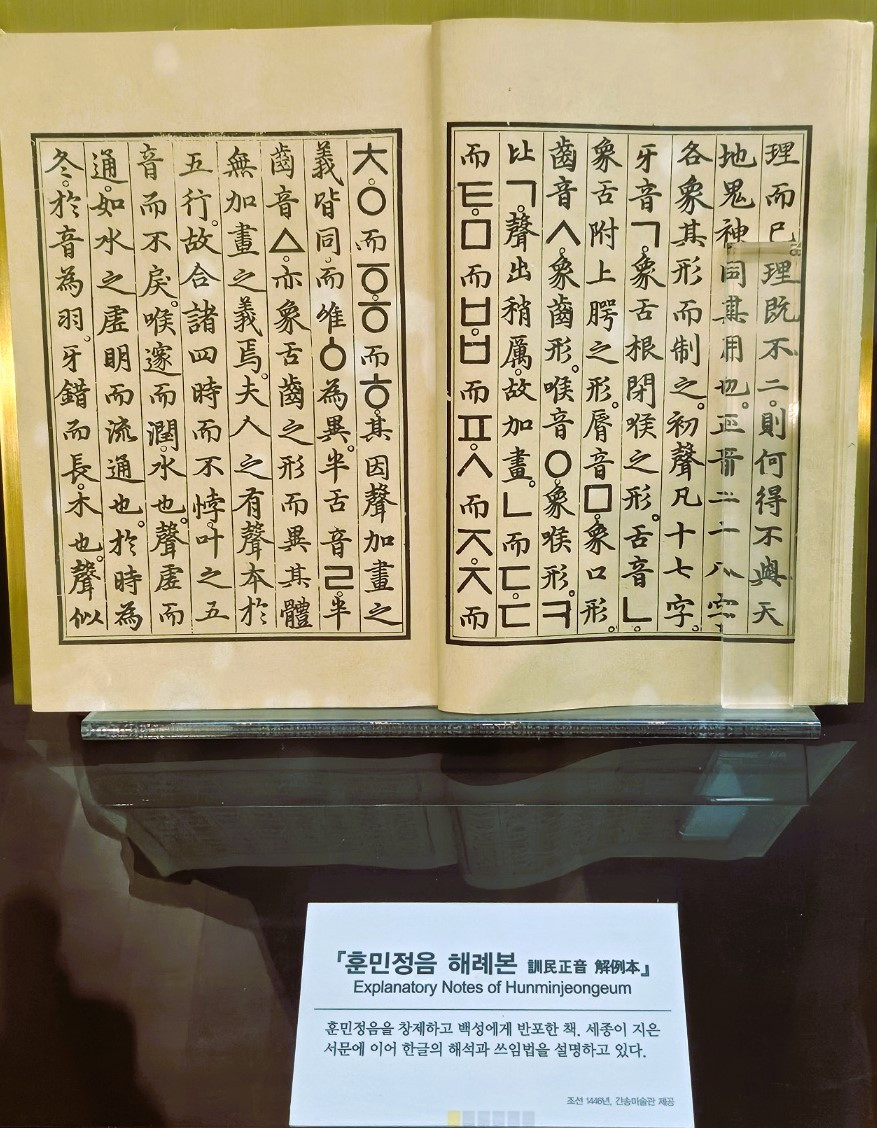 理而已。理既不二。則何得不與天
地鬼神同其用也。正音二十八字。
各象其形而制之。初聲凡十七字。
牙音ㄱ。象舌根閉喉之形。舌音ㄴ。
象舌附上腭之形。脣音ㅁ。象口形。
齒音ㅅ。象齒形。喉音ㅇ。象喉形。ㅋ
比ㄱ。聲出稍厲。故加畫。ㄴ而ㄷ。ㄷ
而ㅌ。ㅁ而ㅂ。ㅂ而ㅍ。ㅅ而ㅈ。ㅈ而
ㅊ。ㅇ而ㆆ。ㆆ而ㅎ。其因聲加畫之
義皆同。而唯ㆁ為異。半舌音ㄹ。半
齒音ㅿ。亦象舌齒之形而異其體
無加畫之義焉。夫人之有聲本於
五行。故合諸四時而不悖。叶之五
音而不戾。喉邃而潤。水也。聲虛而
通。如水之虛明而流通也。於時為
冬。於音為羽。牙錯而長。木也。聲似
『훈민정음 해례본 訓民正音 解例本』
Explanatory Notes of Hunminjeongeum
훈민정음을 창제하고 백성에게 반포한 책. 세종이 지은
서문에 이어 한글의 해석과 쓰임법을 설명하고 있다.
조선 1446년, 간송미술관 제공